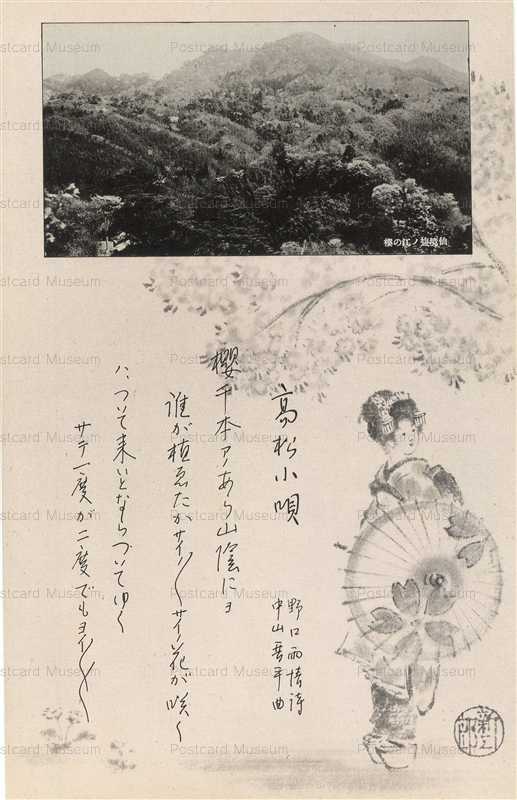 仙境塩ノ江の櫻
高松小唄
野口雨情詩
中山晋平曲
櫻千本アあら山陰にヨ
誰が植ゑたかサイ／＼サイ花が咲く
ハ、ついて来いとならついてゆく
サテ一度が二度でもヨイ／＼／＼
Postcard Museum